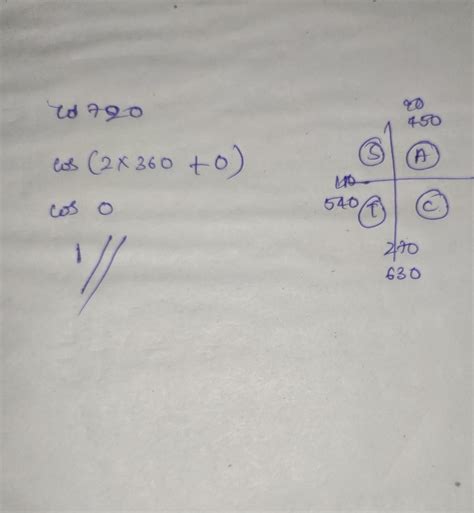 cos 720
cos (2×360 + 0)
cos 0
1 //
90
450
S A
180
540 T C
270
630